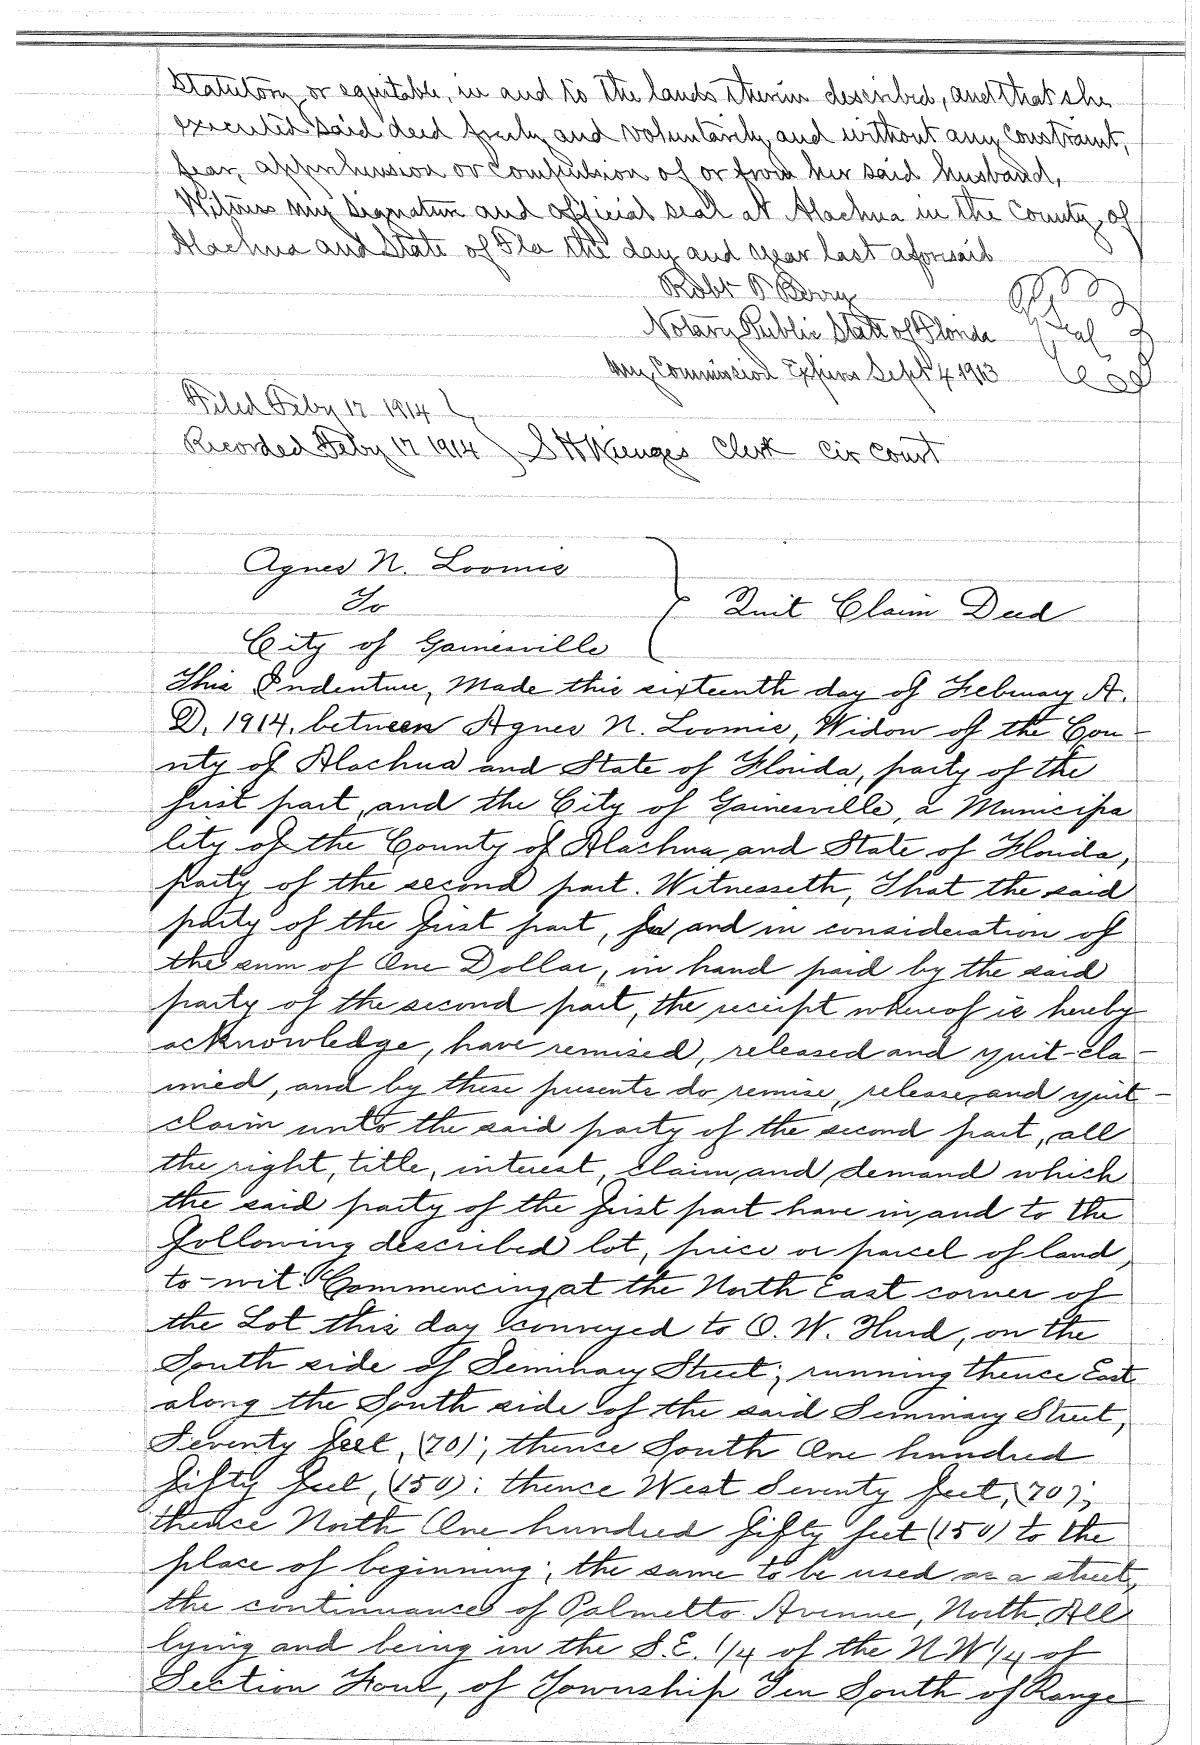 Statutory or equitable, in and to the lands therein described, and that she
executed said deed freely and voluntarily and without any constraint,
fear, apprehension or compulsion of or from her said husband.
Witness my signature and official seal at Alachua in the County of
Alachua and State of Fla the day and year last aforesaid
Robt P Berry
Notary Public State of Florida
Seal
My Commission Expires Sept 4 1913
Filed Feby 17 1914
Recorded Feby 17 1914 } S H Wienges Clerk Cir Court
Agnes N. Loomis
To
Quit Claim Deed
City of Gainesville
This Indenture, Made this sixteenth day of February A.
D. 1914, between Agnes N. Loomis, Widow of the Cou-
nty of Alachua and State of Florida, party of the
first part, and the City of Gainesville, a Municipa
lity of the County of Alachua and State of Florida,
party of the second part. Witnesseth, That the said
party of the first part, for and in consideration of
the sum of One Dollar, in hand paid by the said
party of the second part, the receipt whereof is hereby
acknowledge, have remised, released and quit-cla-
imed, and by these presents do remise, release, and quit-
claim unto the said party of the second part, all
the right, title, interest, claim, and demand which
the said party of the first part have in and to the
following described lot, piece or parcel of land,
to-wit: Commencing at the North East corner of
the Lot this day conveyed to O. W. Hurd, on the
South side of Seminary Street; running thence East
along the South side of the said Seminary Street,
Seventy feet, (70); thence South One hundred
fifty feet, (150); thence West Seventy feet, (70);
thence North One hundred fifty feet (150) to the
place of beginning; the same to be used as a street,
the continuance of Palmetto Avenue, North, All
lying and being in the S.E. 1/4 of the N.W 1/4 of
Section Four, of Township Ten South of Range